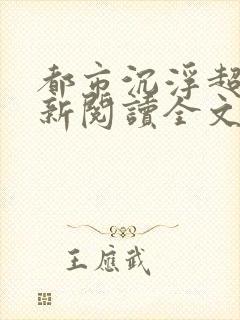 都市沉浮超
新閱讀全文
王應武